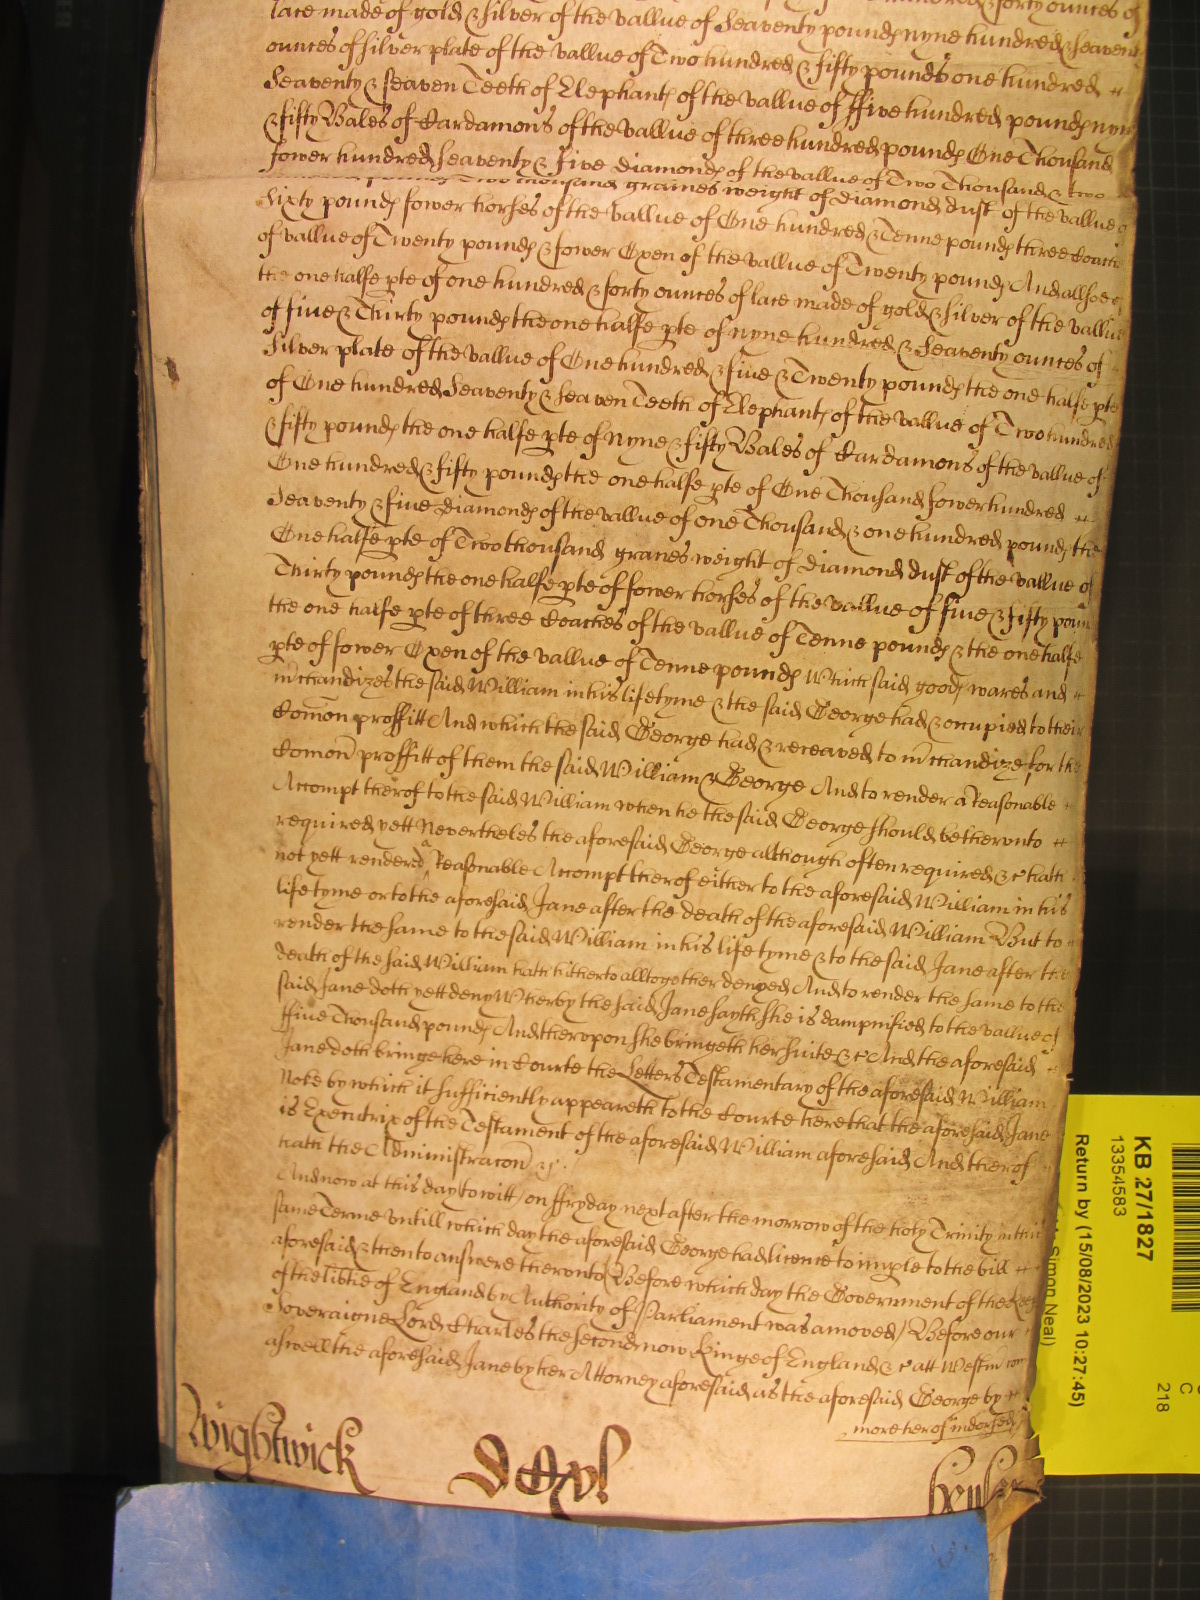 hundred & forty ounces of
lace made of gold & silver of the vallue of Seaventy pounds nyne hundred & Seaventy
ounces of silver plate of the vallue of Two hundred & fifty pounds one hundred
Seaventy & seaven Teeth of Elephants of the vallue of ffive hundred pounds nyne
& fifty Bales of Cardamons of the vallue of three hundred pounds One Thousand
fower hundred Seaventy & five diamonds of the vallue of Two Thousand & two
Two thousand graines weight of diamond dust of the vallue of
Sixty pounds fower horses of the vallue of One hundred & Tenne pounds three Coaches
of vallue of Twenty pounds & fower Oxen of the vallue of Twenty pounds And allsoe of
the one halfe pte of one hundred & forty ounces of lace made of gold & silver of the vallue
of five & Thirty pounds the one halfe pte of nyne hundred & Seaventy ounces of
Silver plate of the vallue of One hundred & five & Twenty pounds the one halfe pte
of One hundred Seaventy & seaven Teeth of Elephants of the vallue of Two hundred
& fifty pounds the one halfe pte of nyne & fifty Bales of Cardamons of the vallue of
One hundred & fifty pounds the one halfe pte of One Thousand fower hundred
Seaventy & five diamonds of the vallue of one Thousand & one hundred pounds the
One halfe pte of Two thousand granes weight of diamond dust of the vallue of
Thirty pounds the one halfe pte of fower horses of the vallue of five & fifty poun
the one halfe pte of three Coaches of the vallue of Tenne pounds & the one halfe
pte of fower Oxen of the vallue of Tenne pounds Which said goods wares and
m'chandizes the said William in his life tyme & the said George had & occupied to their
Comon proffitt And which the said George had & receaved to m'chandize for the
Comon proffitt of them the said William & George And to render a Reasonable
Accompt therof to the said William when he the said George should be therunto
required yett Nevertheles the aforesaid George although often required &c hath
not yett rendered a Reasonable Accompt therof either to the aforesaid William in his
life tyme or to the aforesaid Jane after the death of the aforesaid William But to
render the same to the said William in his life tyme & to the said Jane after the
death of the said William hath hitherto alltogether denyed And to render the same to the
said Jane doth yett deny Wherby the said Jane sayth she is dampnified to the vallue of
ffive Thousand pounds And therupon she bringeth her suite &c And the aforesaid
Jane doth bringe here in Courte the Letters Testamentary of the aforesaid William
Noke by which it sufficiently appeareth to the Courte here that the aforesaid Jane
is Executrix of the Testament of the aforesaid William aforesaid And therof
hath the Administracon &c.
And now at this day to witt on ffryday next after the morrow of the holy Trinity in this
same Terme untill which day the aforesaid George had licence to imple to the bill
aforesaid & then to answere therunto (Before which day the Government of the Keep
of the libtie of England by Authority of Parliament was amoved) Before our
Soveraigne Lord Charles the second now Kinge of England &c att Westm' com
aswell the aforesaid Jane by her Attorney aforesaid as the aforesaid George by
more herof indorsed
Wightwick
KB 27/1827
13354583
Return by (15/08/2023 10:27:45)
Simon Neal)
218
C